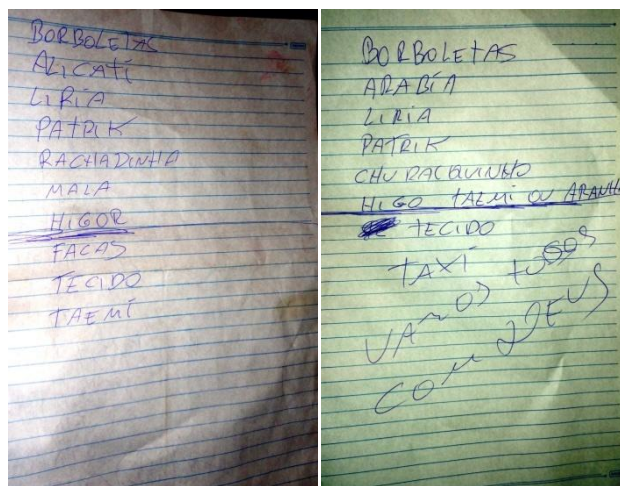 BORBOLETAS
ALICATI
LIRIA
PATRIK
RACHADINHA
MALA
HIGOR
FACAS
TECIDO
TAEMI
BORBOLETAS
ARABIA
LIRIA
PATRIK
CHURRAQUINHO
HIGO TAEMI OU ARANH
TECIDO
TAXI
VAMOS TODOS
COM DEUS